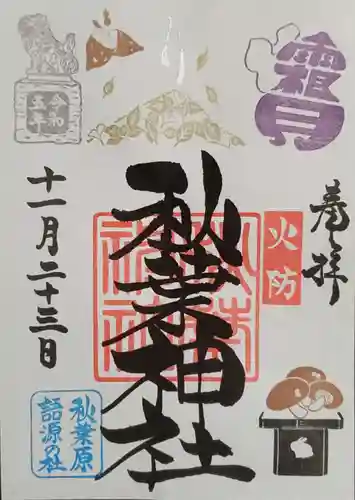 奉拝
火防
秋葉神社
霜月
令和
五年
十一月二十三日
秋葉原
語源の社